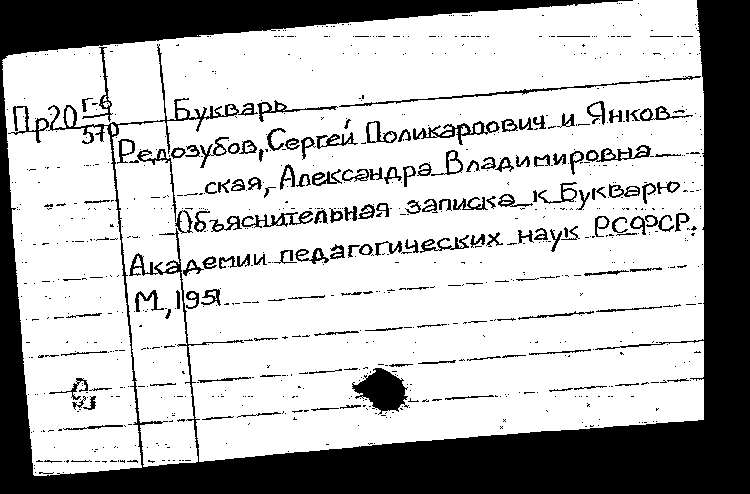 Пр20 Г-6
570
Букварь
Редозубов, Сергей Поликарпович и Янков-
ская, Александра Владимировна
Объяснительная записка к Букварю
Академии педагогических наук РСФСР.
М., 1951